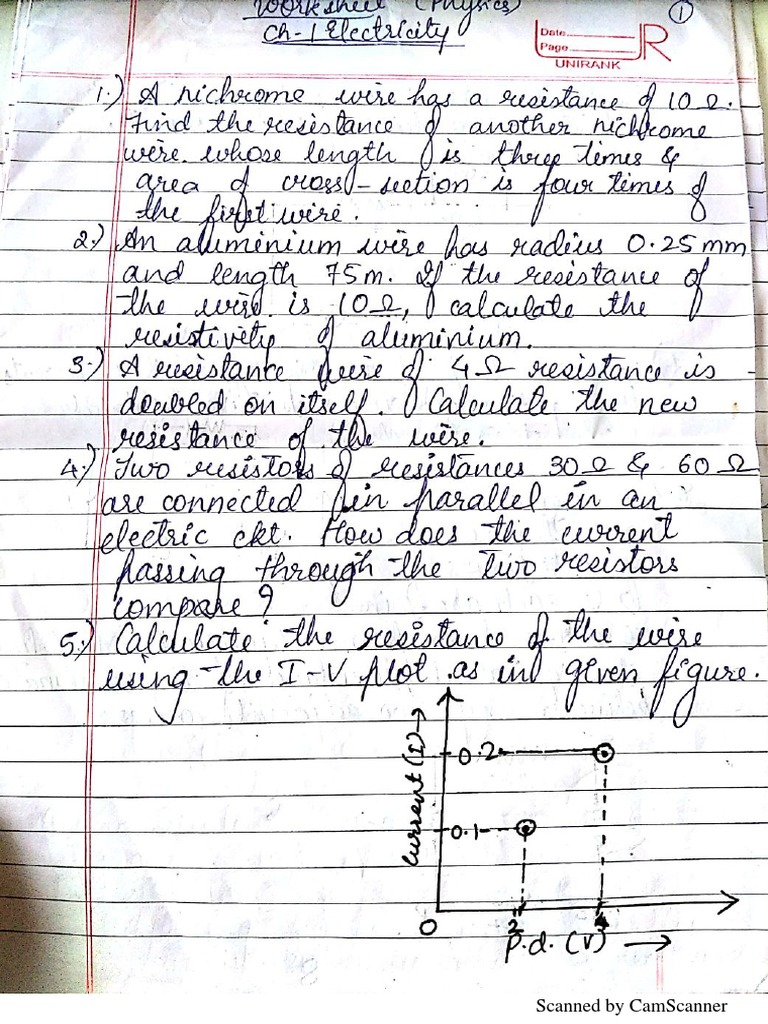 Worksheet (Physics)
1
Ch-1 Electricity
Date
Page
R
UNIRANK
1.) A nichrome wire has a resistance of 10 Ω.
Find the resistance of another nichrome
wire whose length is three times &
area of cross-section is four times of
the first wire.
2.) An aluminium wire has radius 0.25 mm
and length 75m. If the resistance of
the wire is 10Ω, calculate the
resistivity of aluminium.
3.) A resistance wire of 4Ω resistance is
doubled on itself. Calculate the new
resistance of the wire.
4.) Two resistors of resistances 30Ω & 60Ω
are connected in parallel in an
electric ckt. How does the current
passing through the two resistors
compare?
5.) Calculate the resistance of the wire
using the I-V plot as in given figure.
Current (I) →
0.2
0.1
0
2
4
P.d. (V) →
Scanned by CamScanner